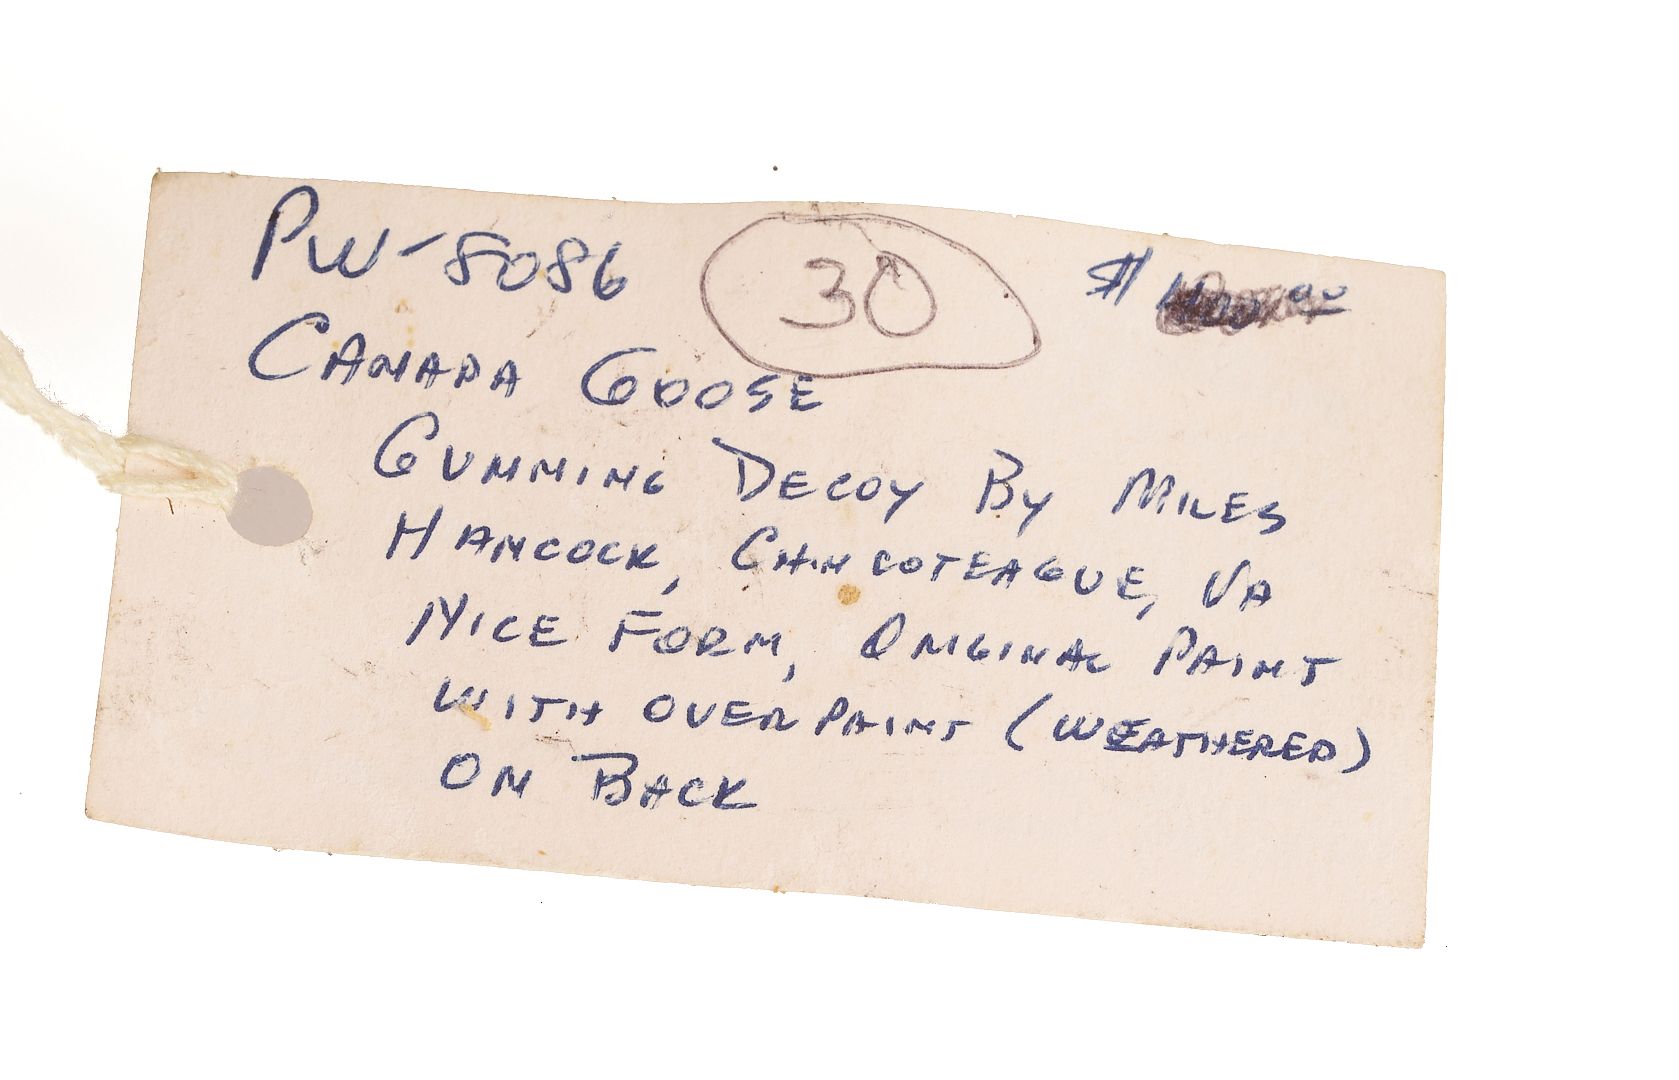 PW-8086 30 $
CANADA GOOSE
GUNNING DECOY BY MILES
HANCOCK, CHINCOTEAGUE, VA
NICE FORM, ORIGINAL PAINT
WITH OVER PAINT (WEATHERED)
ON BACK